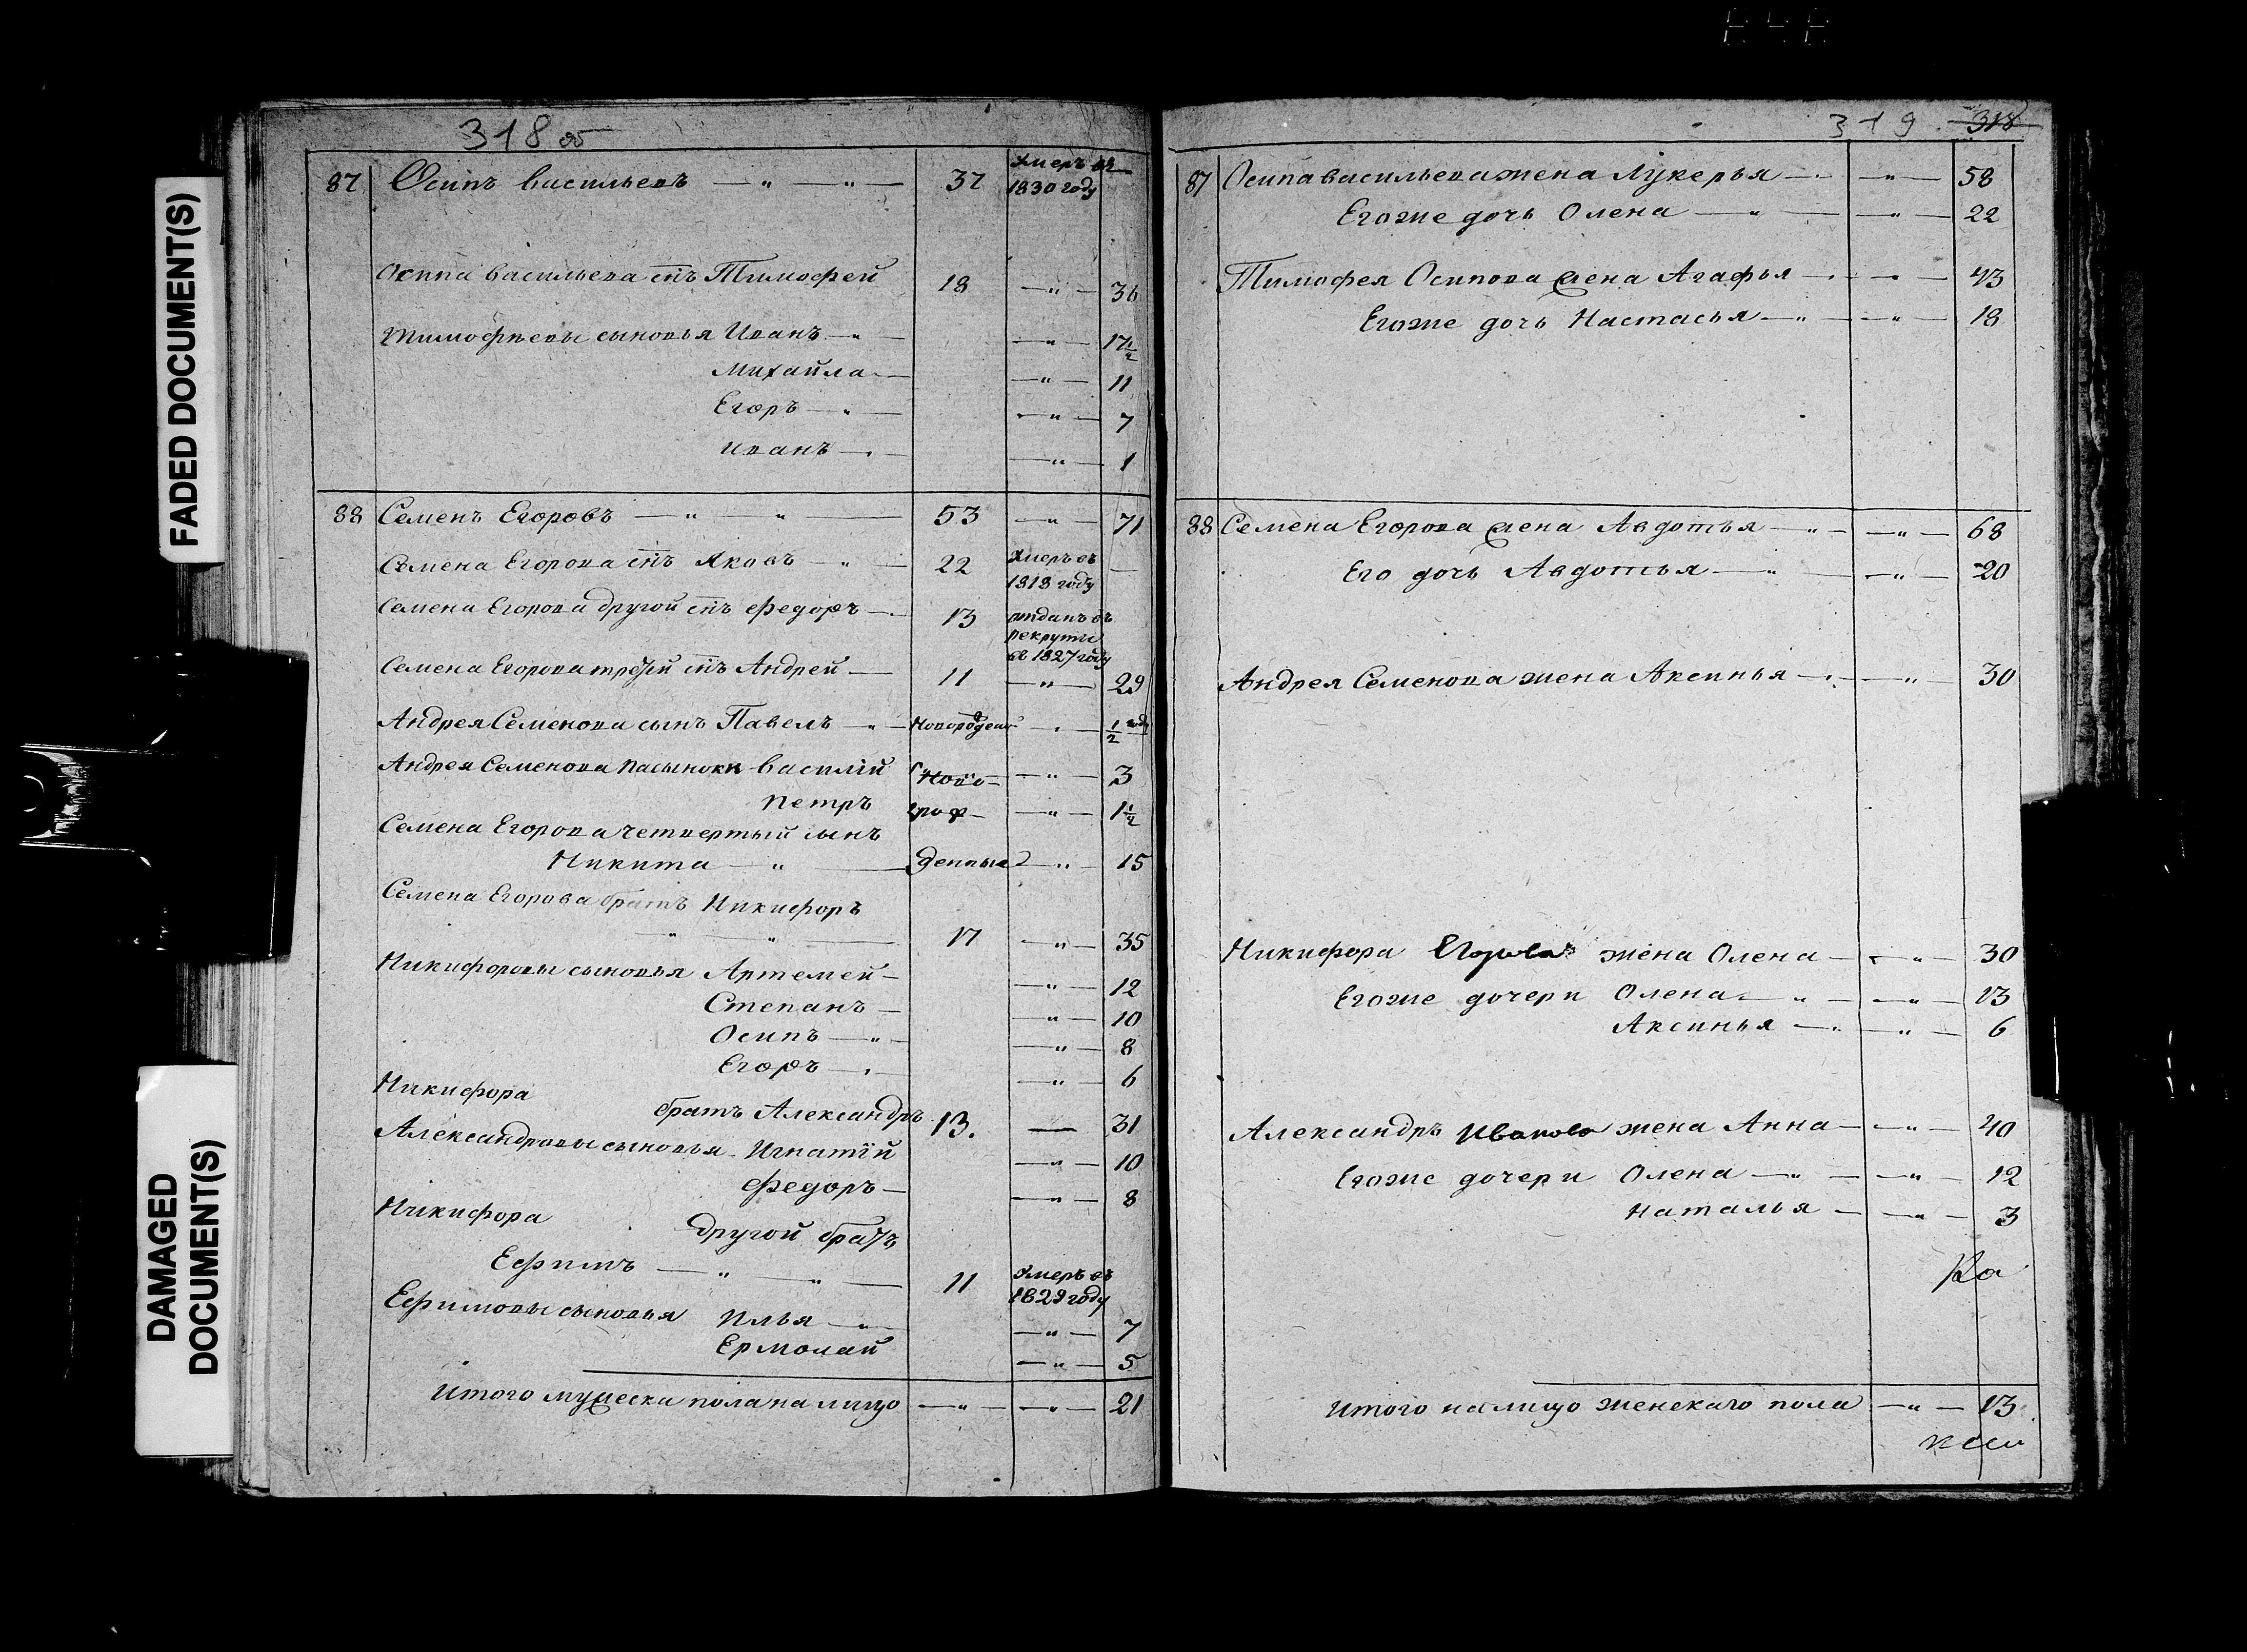 318 об
87 Осипъ васильевъ — " — " — 37 Умеръ въ
1830 году
Осипа васильева снъ Тимофей 18 — " — 36
Тимофѣевы сыновья Иванъ — " — — " — 17½
Михайла — — " — 11
Егоръ — " — — " — 7
Иванъ — — " — 1
88 Семенъ Егоровъ — " " — 53 — " — 71
Семена Егорова снъ Яковъ — " — 22 Умеръ въ —
1818 году
Семена Егорова другой снъ Федоръ — 13 отданъ въ
рекруты
въ 1827 году
Семена Егорова третей снъ Андрей — 11 — " — 29
Андрея Семенова сынъ Павелъ — " — Новорожденой — " — ½ году
Андрея Семенова пасынокн василій Ново= — " — 3
петръ рож= — " — 1½
Семена Егорова четвертый сынъ
Никита — " — денные — " — 15
Семена Егорова братъ Никифоръ
" " — 17 — " — 35
Никифоровы сыновья Артемей — — " — 12
Степанъ — — " — 10
Осипъ — " — — " — 8
Егоръ — — " — 6
Никифора
братъ Александръ 13. — 31
Александровы сыновья Игнатій — " — 10
Федоръ — — " — 8
Никифора другой братъ
Ефимъ — " — " — 11 Умеръ въ
1829 году
Ефимовы сыновья Илья — " — — " — 7
Ермолай — " — 5
Итого мужеска пола на лицо — " — — " — 21
319 318
87 Осипа васильева жена Лукерья — — " — 58
Егоже дочь Олена — " — — " — 22
Тимофея Осипова жена Агафья — — " — 43
Егоже дочь Настасья — " — — " — 18
88 Семена Егорова жена Авдотья — " — — " — 68
Его дочь Авдотья — " — — " — 20
Андрея Семенова жена Аксинья — — " — 30
Никифора Егорова жена Олена — — " — 30
Егоже дочери Олена — " — — " — 13
Аксинья — — " — 6
Александръ Иванова жена Анна — — " — 40
Егоже дочери Олена — " — — " — 12
Наталья — — " — 3
Ка
Итого на лицо женскаго пола — " — 13
FADED DOCUMENT(S)
DAMAGED
DOCUMENT(S)